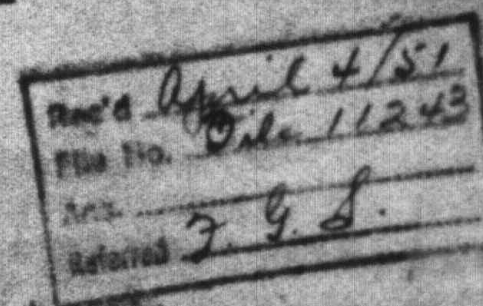 Rec'd April 4/51
File No. File 11243
Ans.
Referred F. G. S.